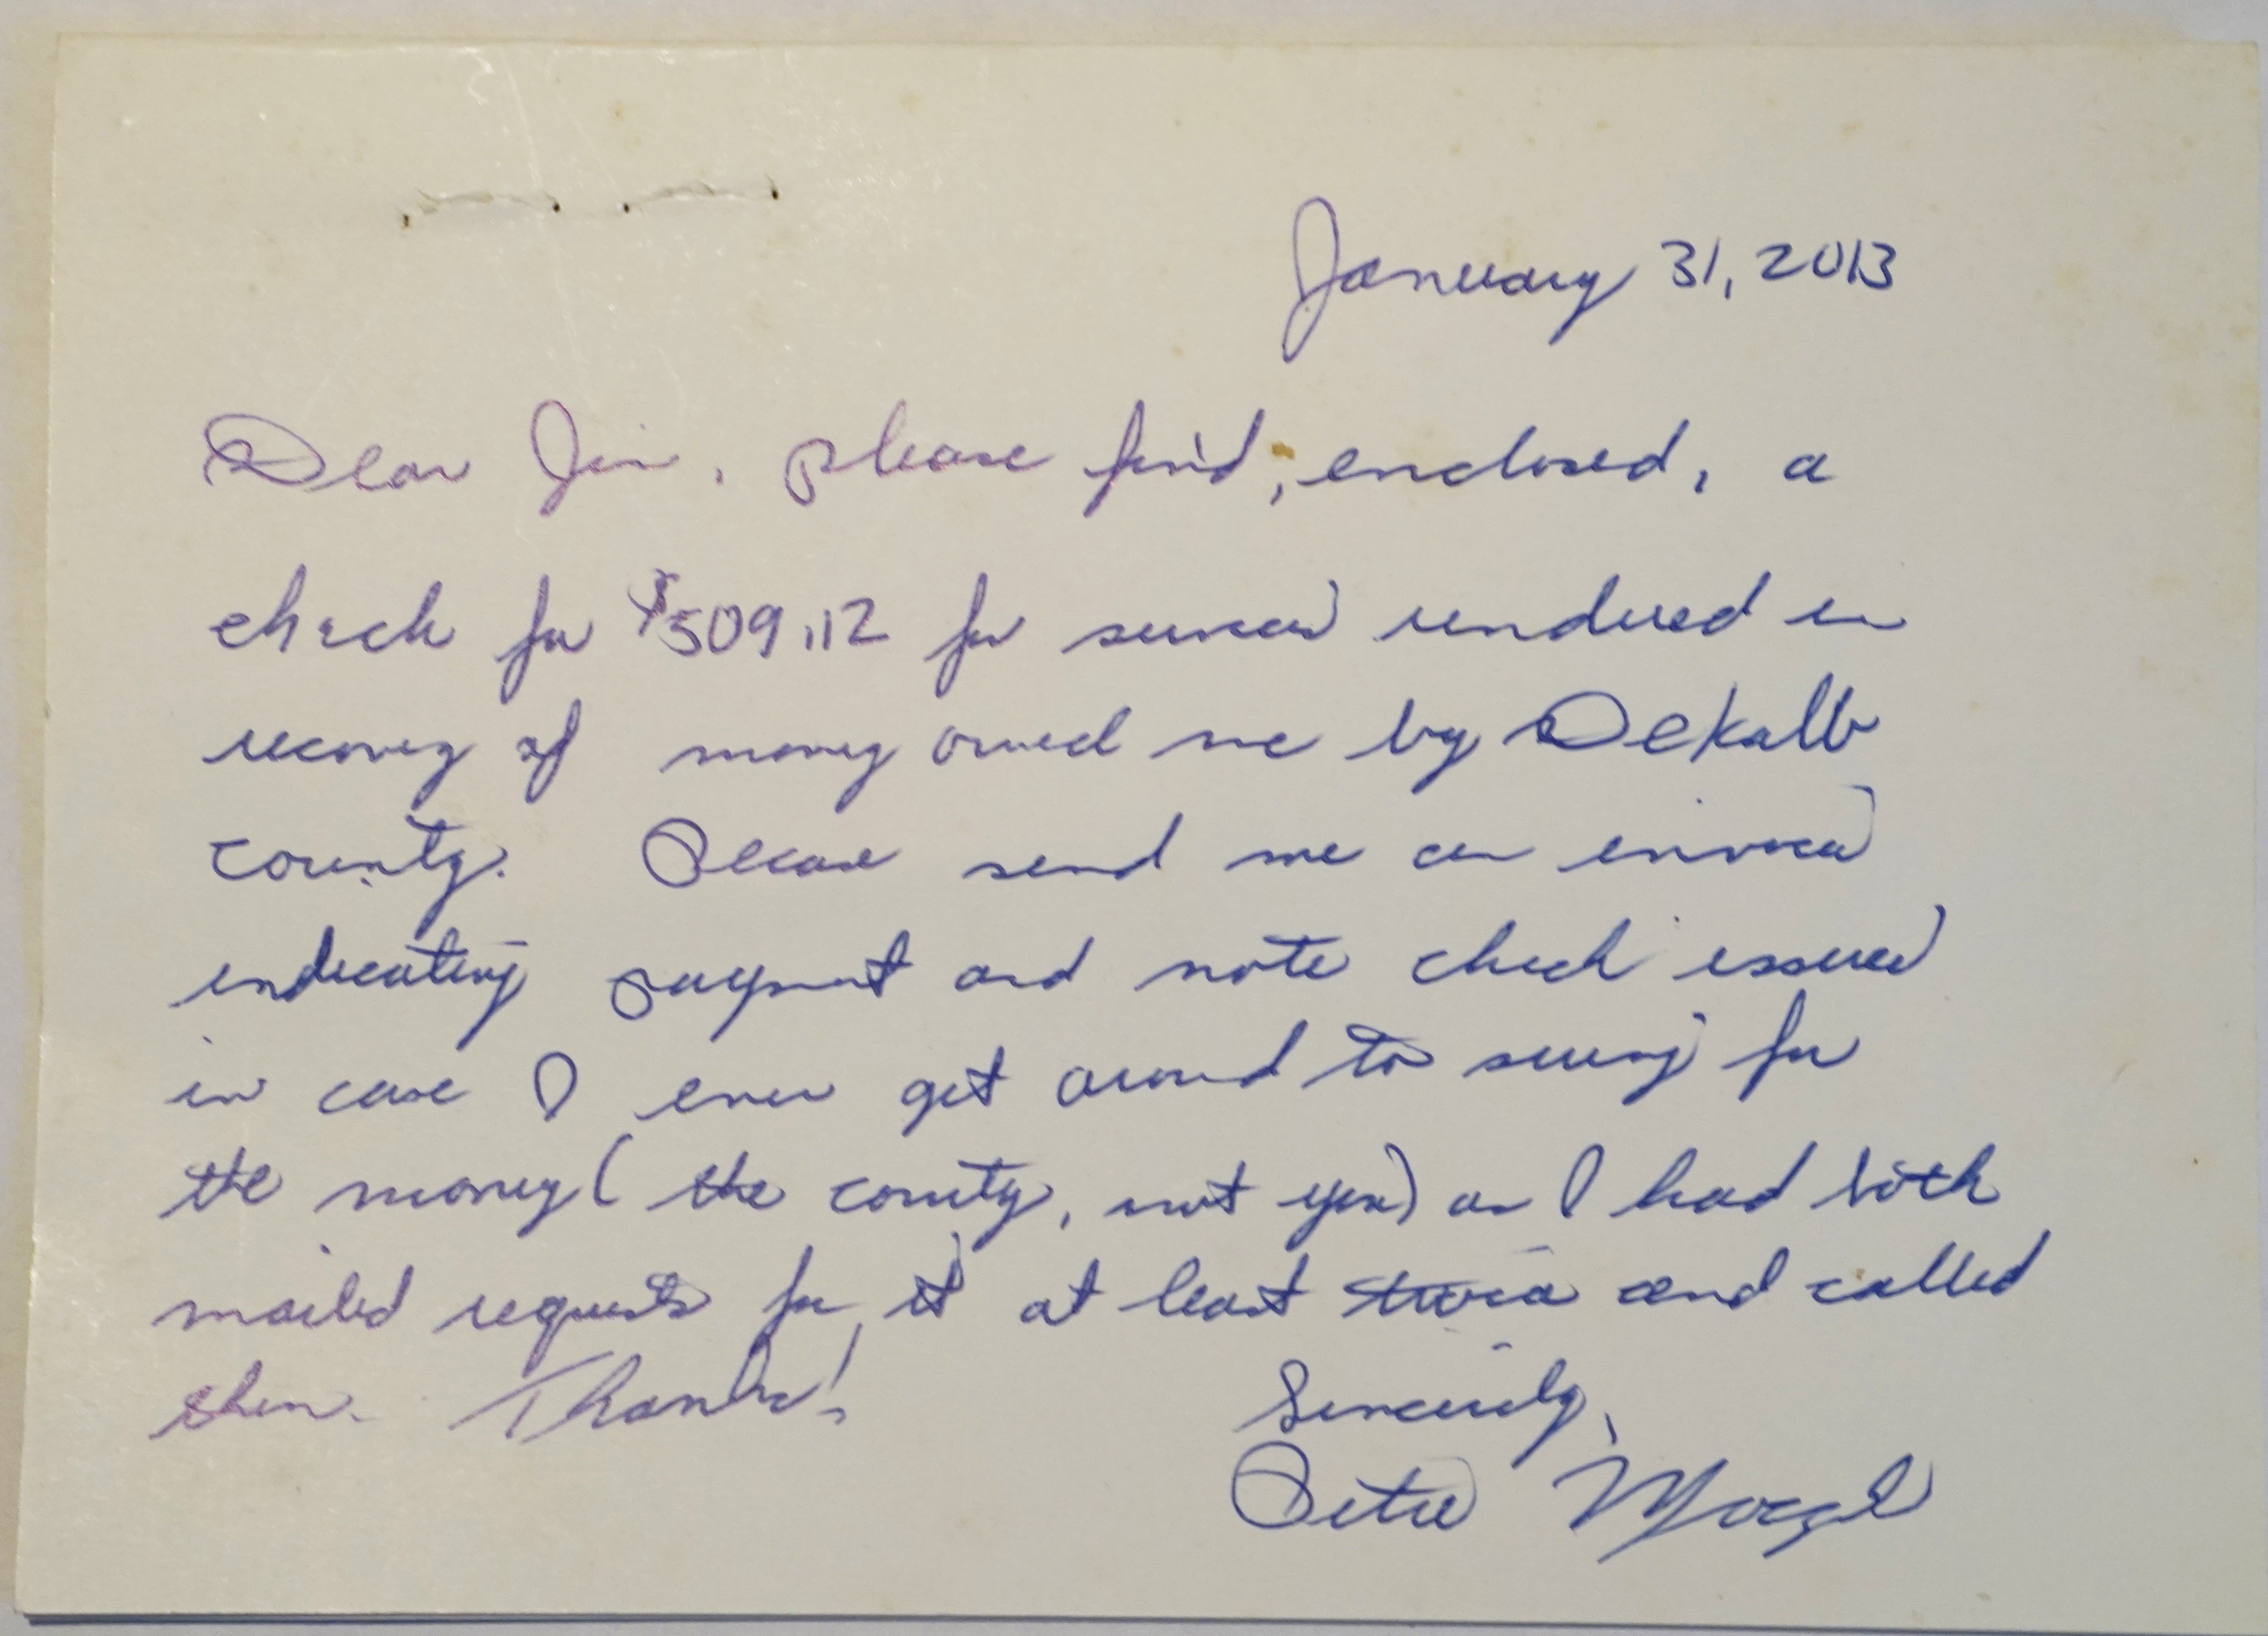 January 31, 2013
Dear Jim, please find, enclosed, a
check for $509.12 for services rendered in
recovery of money owed me by Dekalb
county. Please send me an invoice
indicating payment and note check issued
in case I ever get around to suing for
the money (the county, not you) as I had both
mailed requests for it at least twice and called
them. Thanks!
Sincerely,
Peter